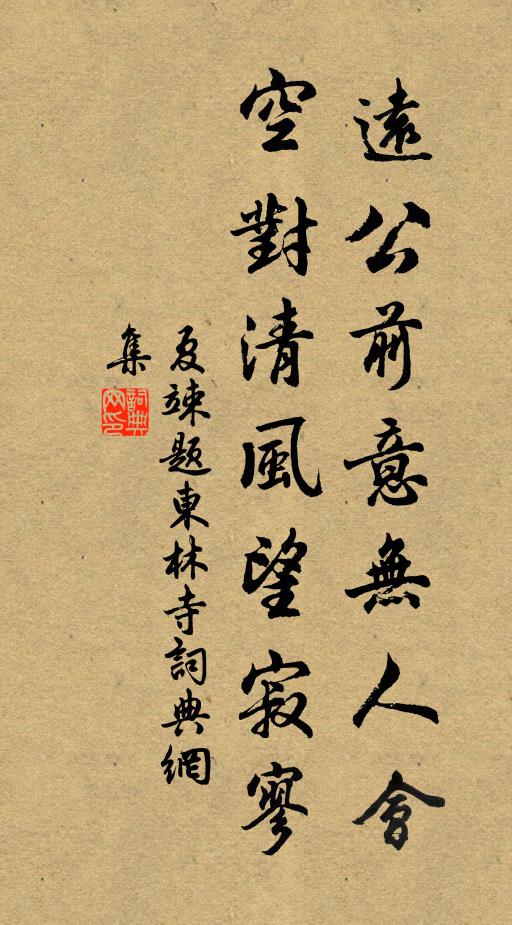 遠公前意無人會
空對清風望寂寥
夏竦題東林寺詞典網
集
詞典
网印